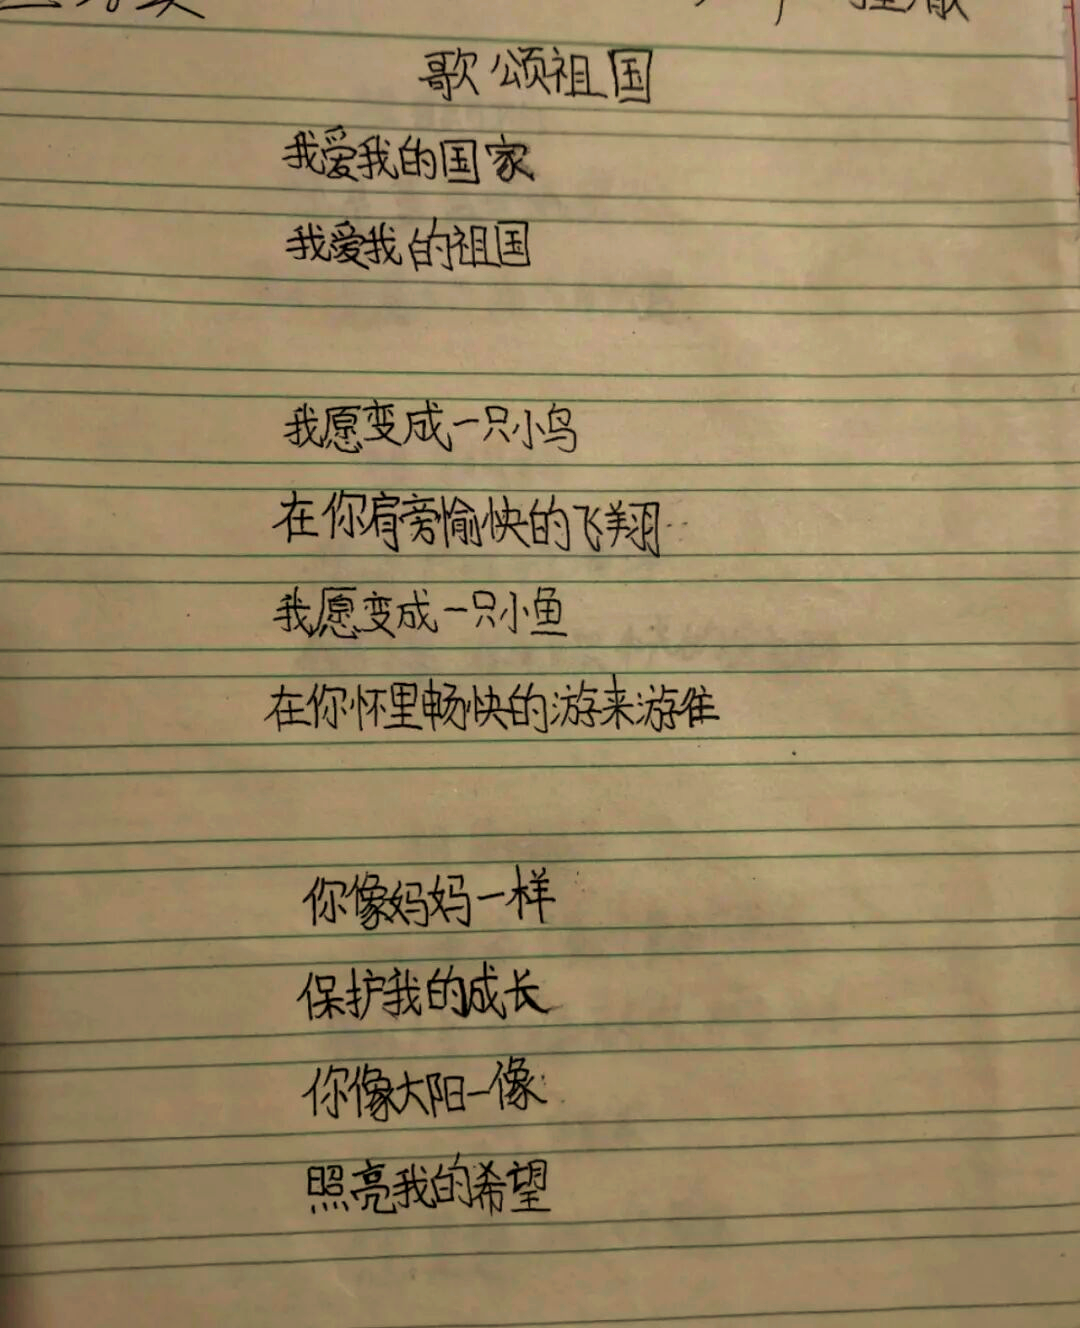 歌颂祖国
我爱我的国家
我爱我的祖国
我愿变成一只小鸟
在你肩旁愉快的飞翔
我愿变成一只小鱼
在你怀里畅快的游来游
你像妈妈一样
保护我的成长
你像太阳一像
照亮我的希望